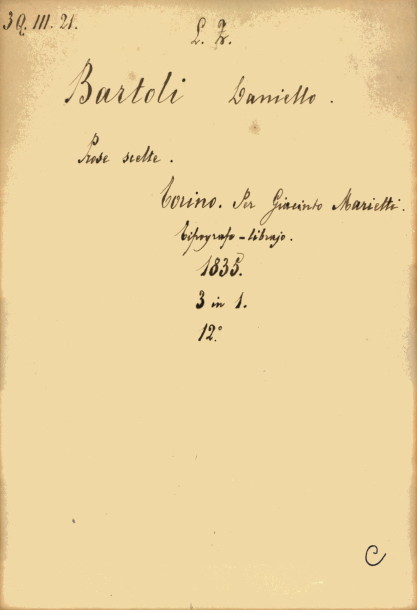 3Q. III. 21.
L. Z.
Bartoli Daniello.
Prose scelte.
Torino. Per Giacinto Marietti.
tipografo-librajo.
1835.
3 in 1.
12.°
C